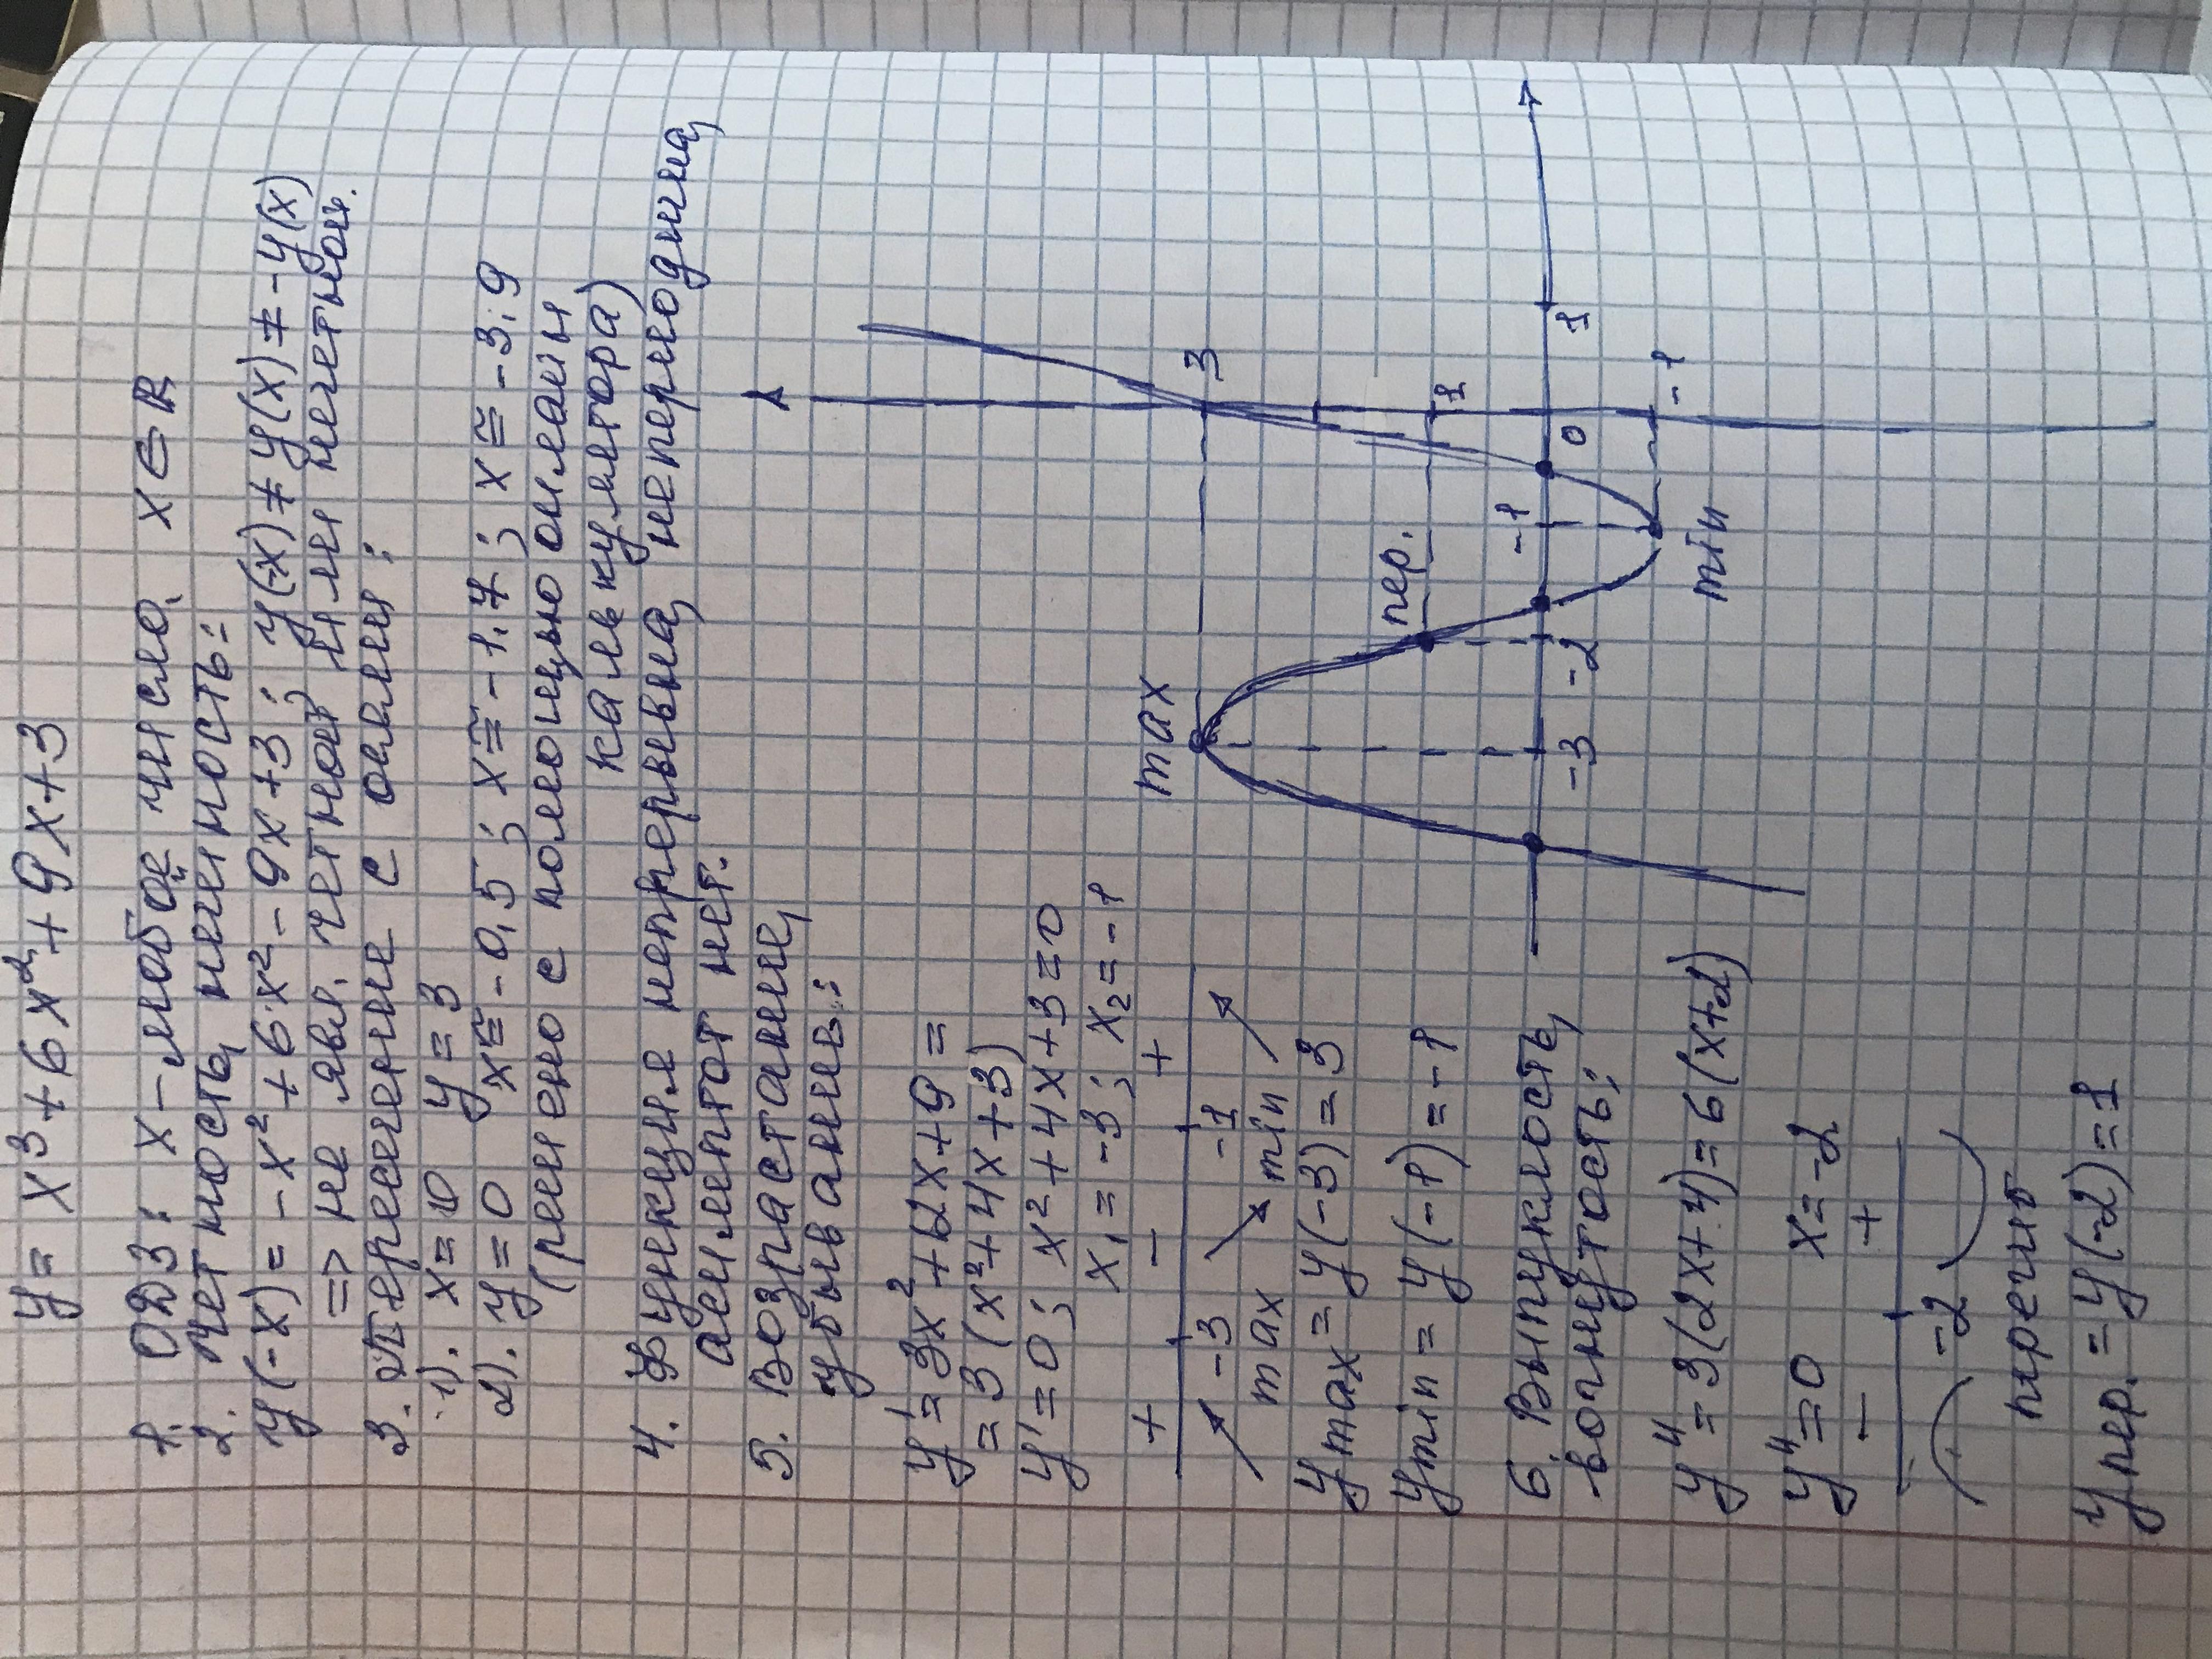 y = x³ + 6x² + 9x + 3
1. ОДЗ: x - любое число, x ∈ R
2. четность, нечетность:
y(-x) = -x² + 6·x² - 9x + 3; y(-x) ≠ y(x) ≠ -y(x)
=> не явл. четной или нечетной.
3. Пересечение с осями:
1). x = 0 y = 3
2). y = 0 x ≅ -0,5; x ≅ -1.7; x ≅ -3.9
(решено с помощью онлайн
калькулятора)
4. Функция непрерывна, непериодична,
асимптот нет.
5. Возрастание,
убывание:
y' = 3x² + 12x + 9 =
= 3(x² + 4x + 3)
y' = 0; x² + 4x + 3 = 0
x₁ = -3; x₂ = -1
+ - +
-3 -1
max min
y max = y(-3) = 3
y min = y(-1) = -1
6. Выпуклость,
вогнутость:
y" = 3(2x + 4) = 6(x+2)
y" = 0 x = -2
- +
-2
перегиб
y пер. = y(-2) = 1
max
3
пер.
1
-3 -2 -1 0 1
-1
min